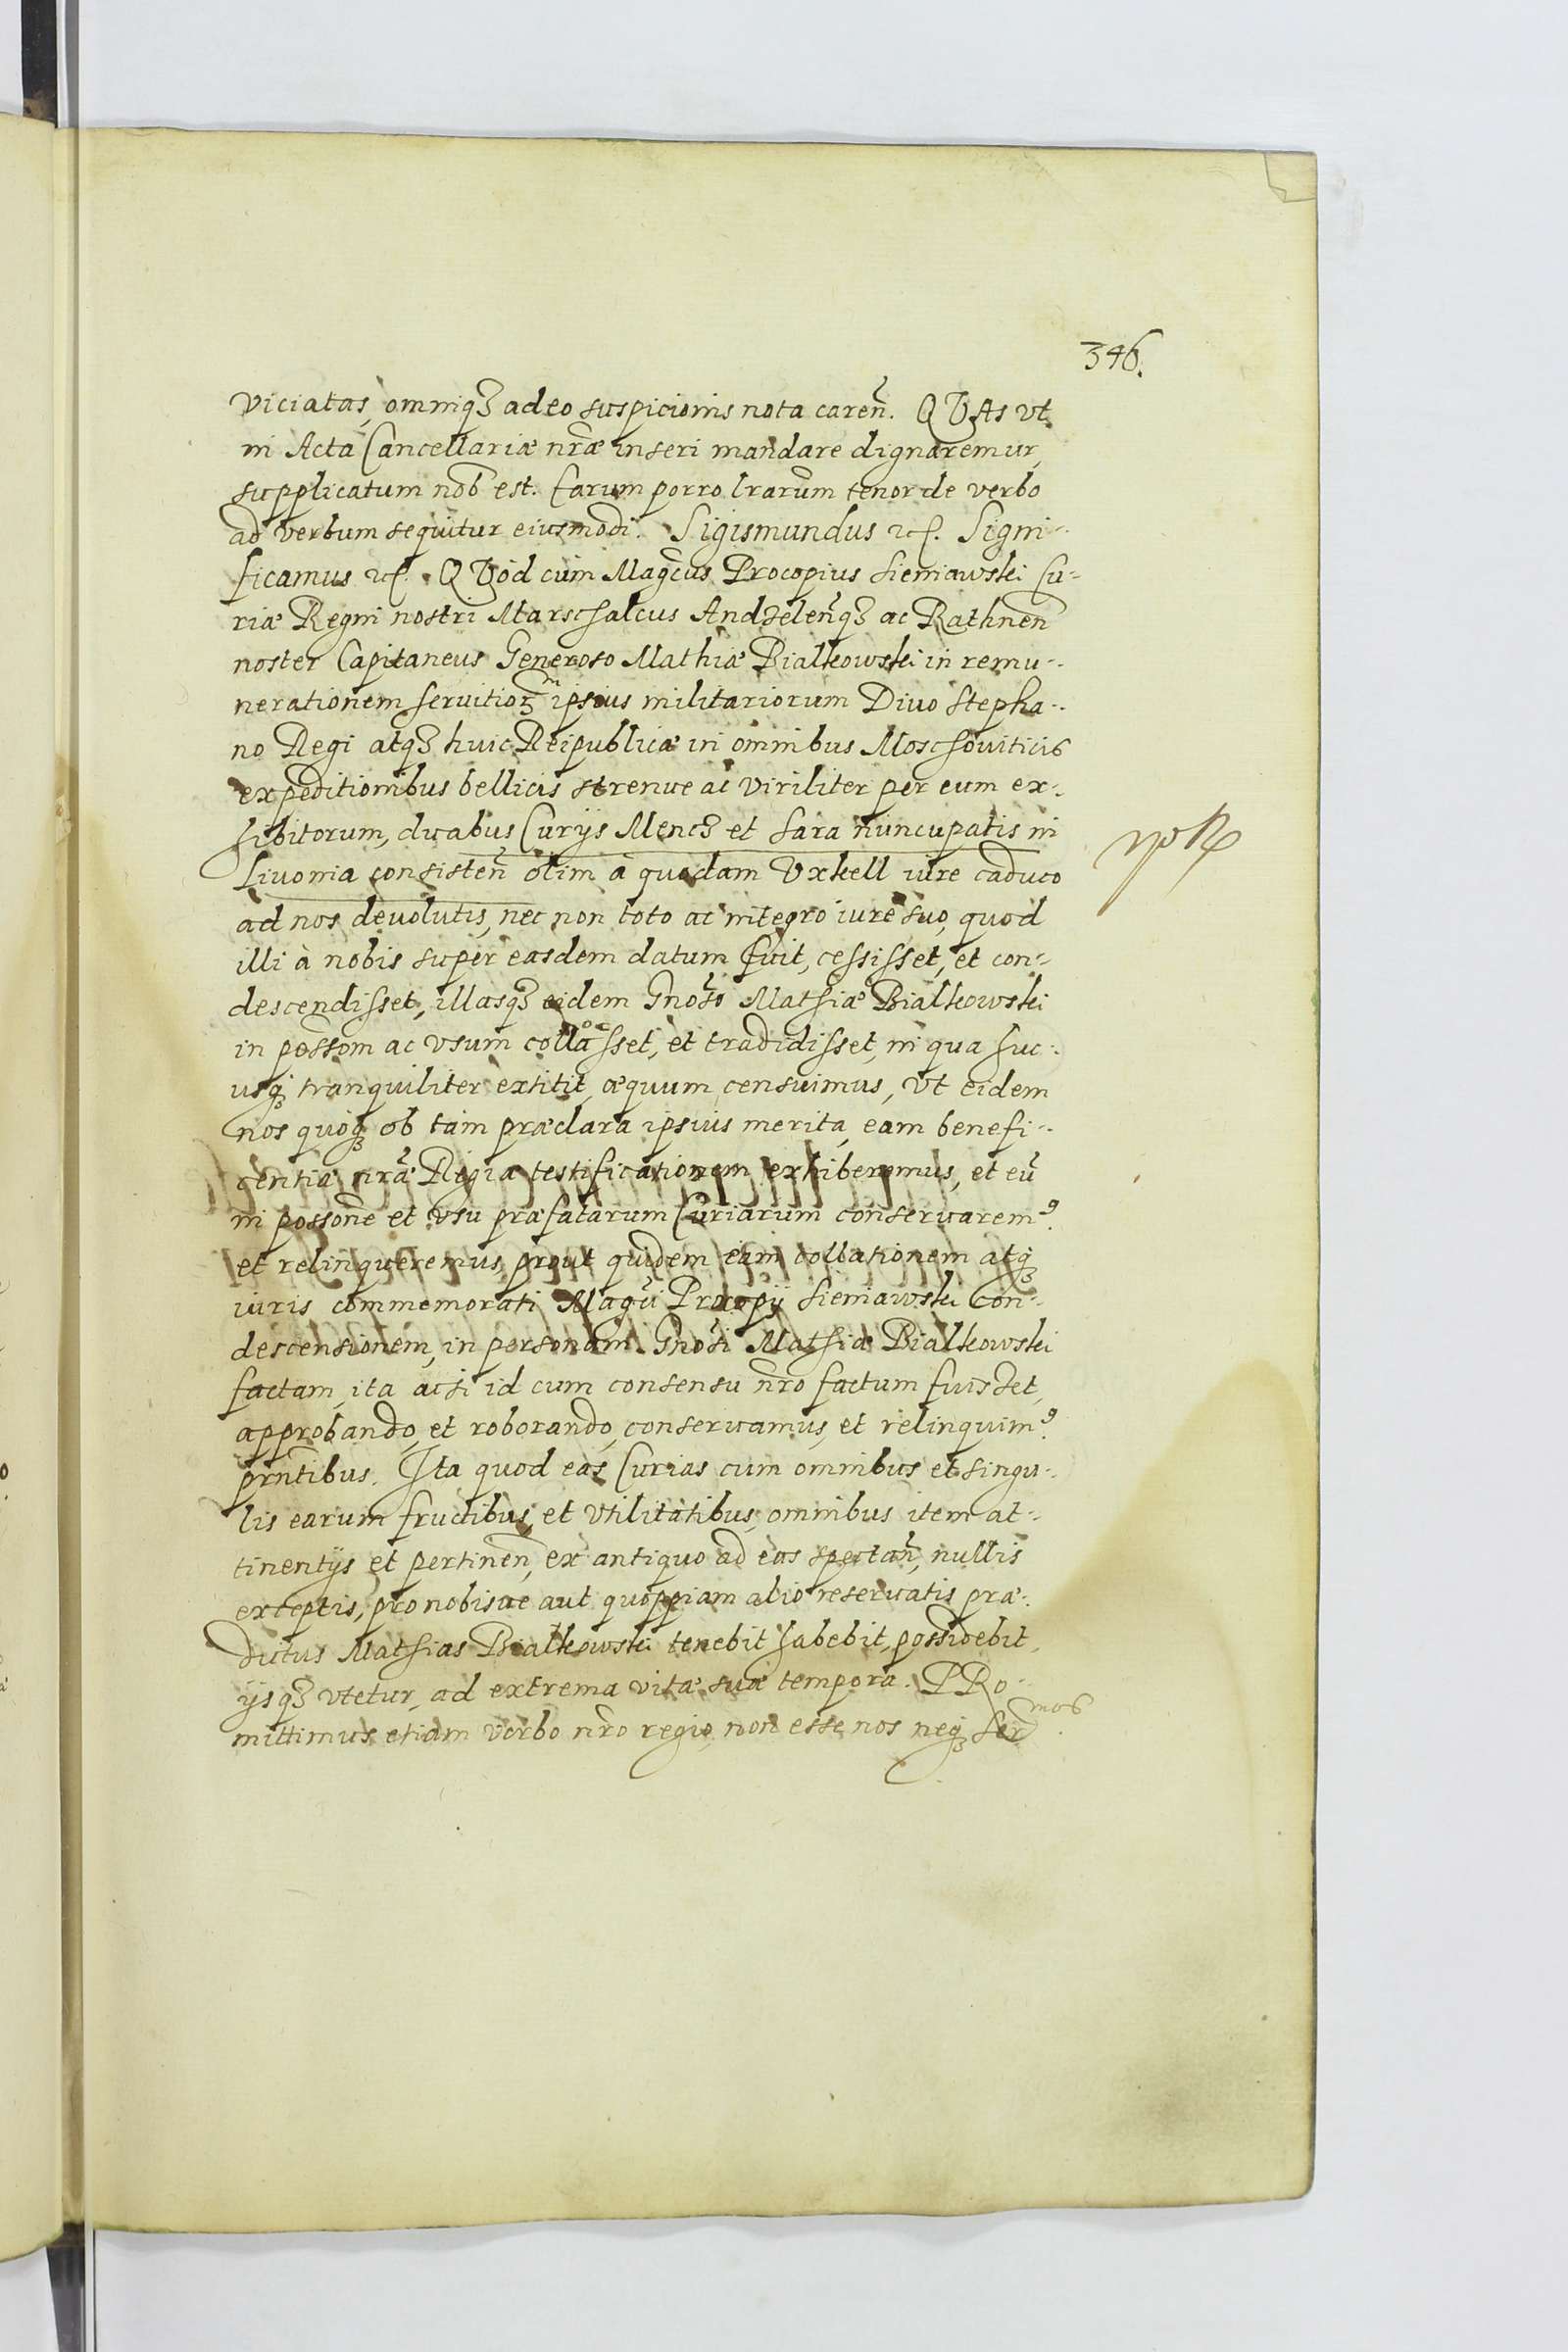 346.
viciatas, omniq₃ adeo suspicionis nota careñ. QVAs vt
in Acta Cancellariæ nr̃æ inseri mandare dignaremur,
supplicatum nob̃ est. Earum porro lr̃arum tenor de verbo
ad verbum sequitur eiusmodi. Sigismundus etc. Signi-
ficamus etc. QVòd cùm Mag̃cus Procopius Sieniawski Cu-
riæ Regni nostri Marschalcus Andzeleñq₃ ac Rathneñ
noster Capitaneus Generoso Mathiæ Bialkowski in remu-
nerationem seruitioꝝ ipsius militariorum Diuo Stepha-
no Regi atq₃ huic Reipublicæ in omnibus Moschouiticis
expeditionibus bellicis strenue ac viriliter per eum ex-
hibitorum, duabus Curijs Mencz et Sara nuncupatis in
Liuonia consisteñ olim à quodam Vxkell iure caduco
ad nos deuolutis, nec non toto ac integro iure suo, quod
illi à nobis super easdem datum fuit, cessisset, et con-
descendisset, illasq₃ eidem Gnõso Mathiæ Bialkowski
in poss̃om ac vsum collocasset, et tradidisset, in qua huc
usq₃ tranquiliter extitit, æquum censuimus, vt eidem
nos quoq₃ ob tam præclara ipsius merita, eam benefi-
centiæ nr̃æ Regiæ testificationem exhiberemus, et eũ
in possone et vsu præfatarum Curiarum conseruaremꝰ
et relinqueremus, prout quidem eam collationem atq₃
iuris commemorati Mag̃ci Procopij Sieniawski con-
descensionem, in personam Gnõsi Mathiæ Bialkowski
factam, ita acsi id cum consensu nr̃o factum fuisset,
approbando, et roborando, conseruamus, et relinquimꝰ
pr̃ntibus. Ita quod eas Curias cum omnibus et singu-
lis earum fructibus, et vtilitatibus, omnibus item at-
tinentijs et pertineñ, ex antiquo ad eas spectañ, nullis
exceptis, pro nobisue aut quoppiam alio reseruatis præ-
dictus Mathias Bialkowski tenebit habebit, possidebit,
ijsq₃ vtetur, ad extrema vitæ suæ tempora. PRo-
mittimus etiam verbo nr̃o regio, non esse nos neq₃ Ser̃mos